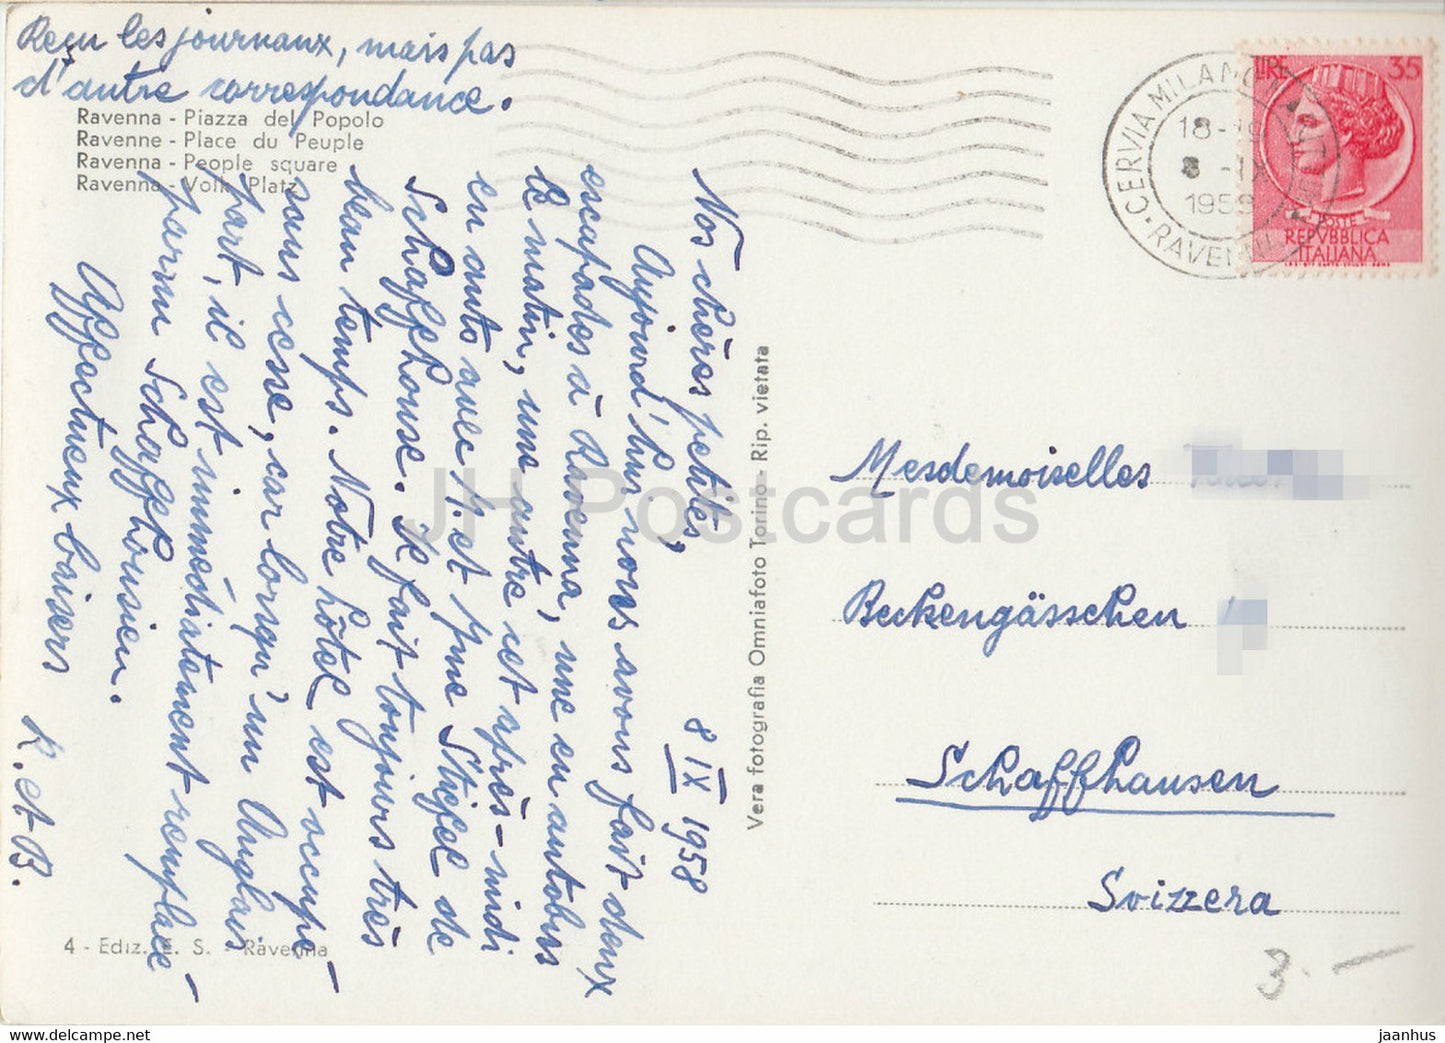 Reçu les journaux, mais pas
d'autre correspondance.
Ravenna - Piazza del Popolo
Ravenne - Place du Peuple
Ravenna - People square
Ravenna - Volk Platz
8 IX 1958
Nos chères petites,
Aujourd'hui nous avons fait deux
escapades à Ravenna, une en autobus
le matin, une autre cet après-midi
en auto avec M. et Mme Stiefel de
Schaffhouse. Il fait toujours très
beau temps. Notre hôtel est occupé
sans cesse, car lorsqu'un Anglais
part, il est immédiatement remplacé
parmi Schaffhousien.
Affectueux baisers
R. et B.
4 - Ediz. E. S. - Ravenna
Vera fotografia Omniafoto Torino - Rip. vietata
CERVIA MILANO
18-19
8 - IX
195
RAVENNA
LIRE 35
POSTE
REPVBBLICA
ITALIANA
Mesdemoiselles
Beckengässchen
Schaffhausen
Svizzera
3.-
JH Postcards
hipstamp.com
jaanhus